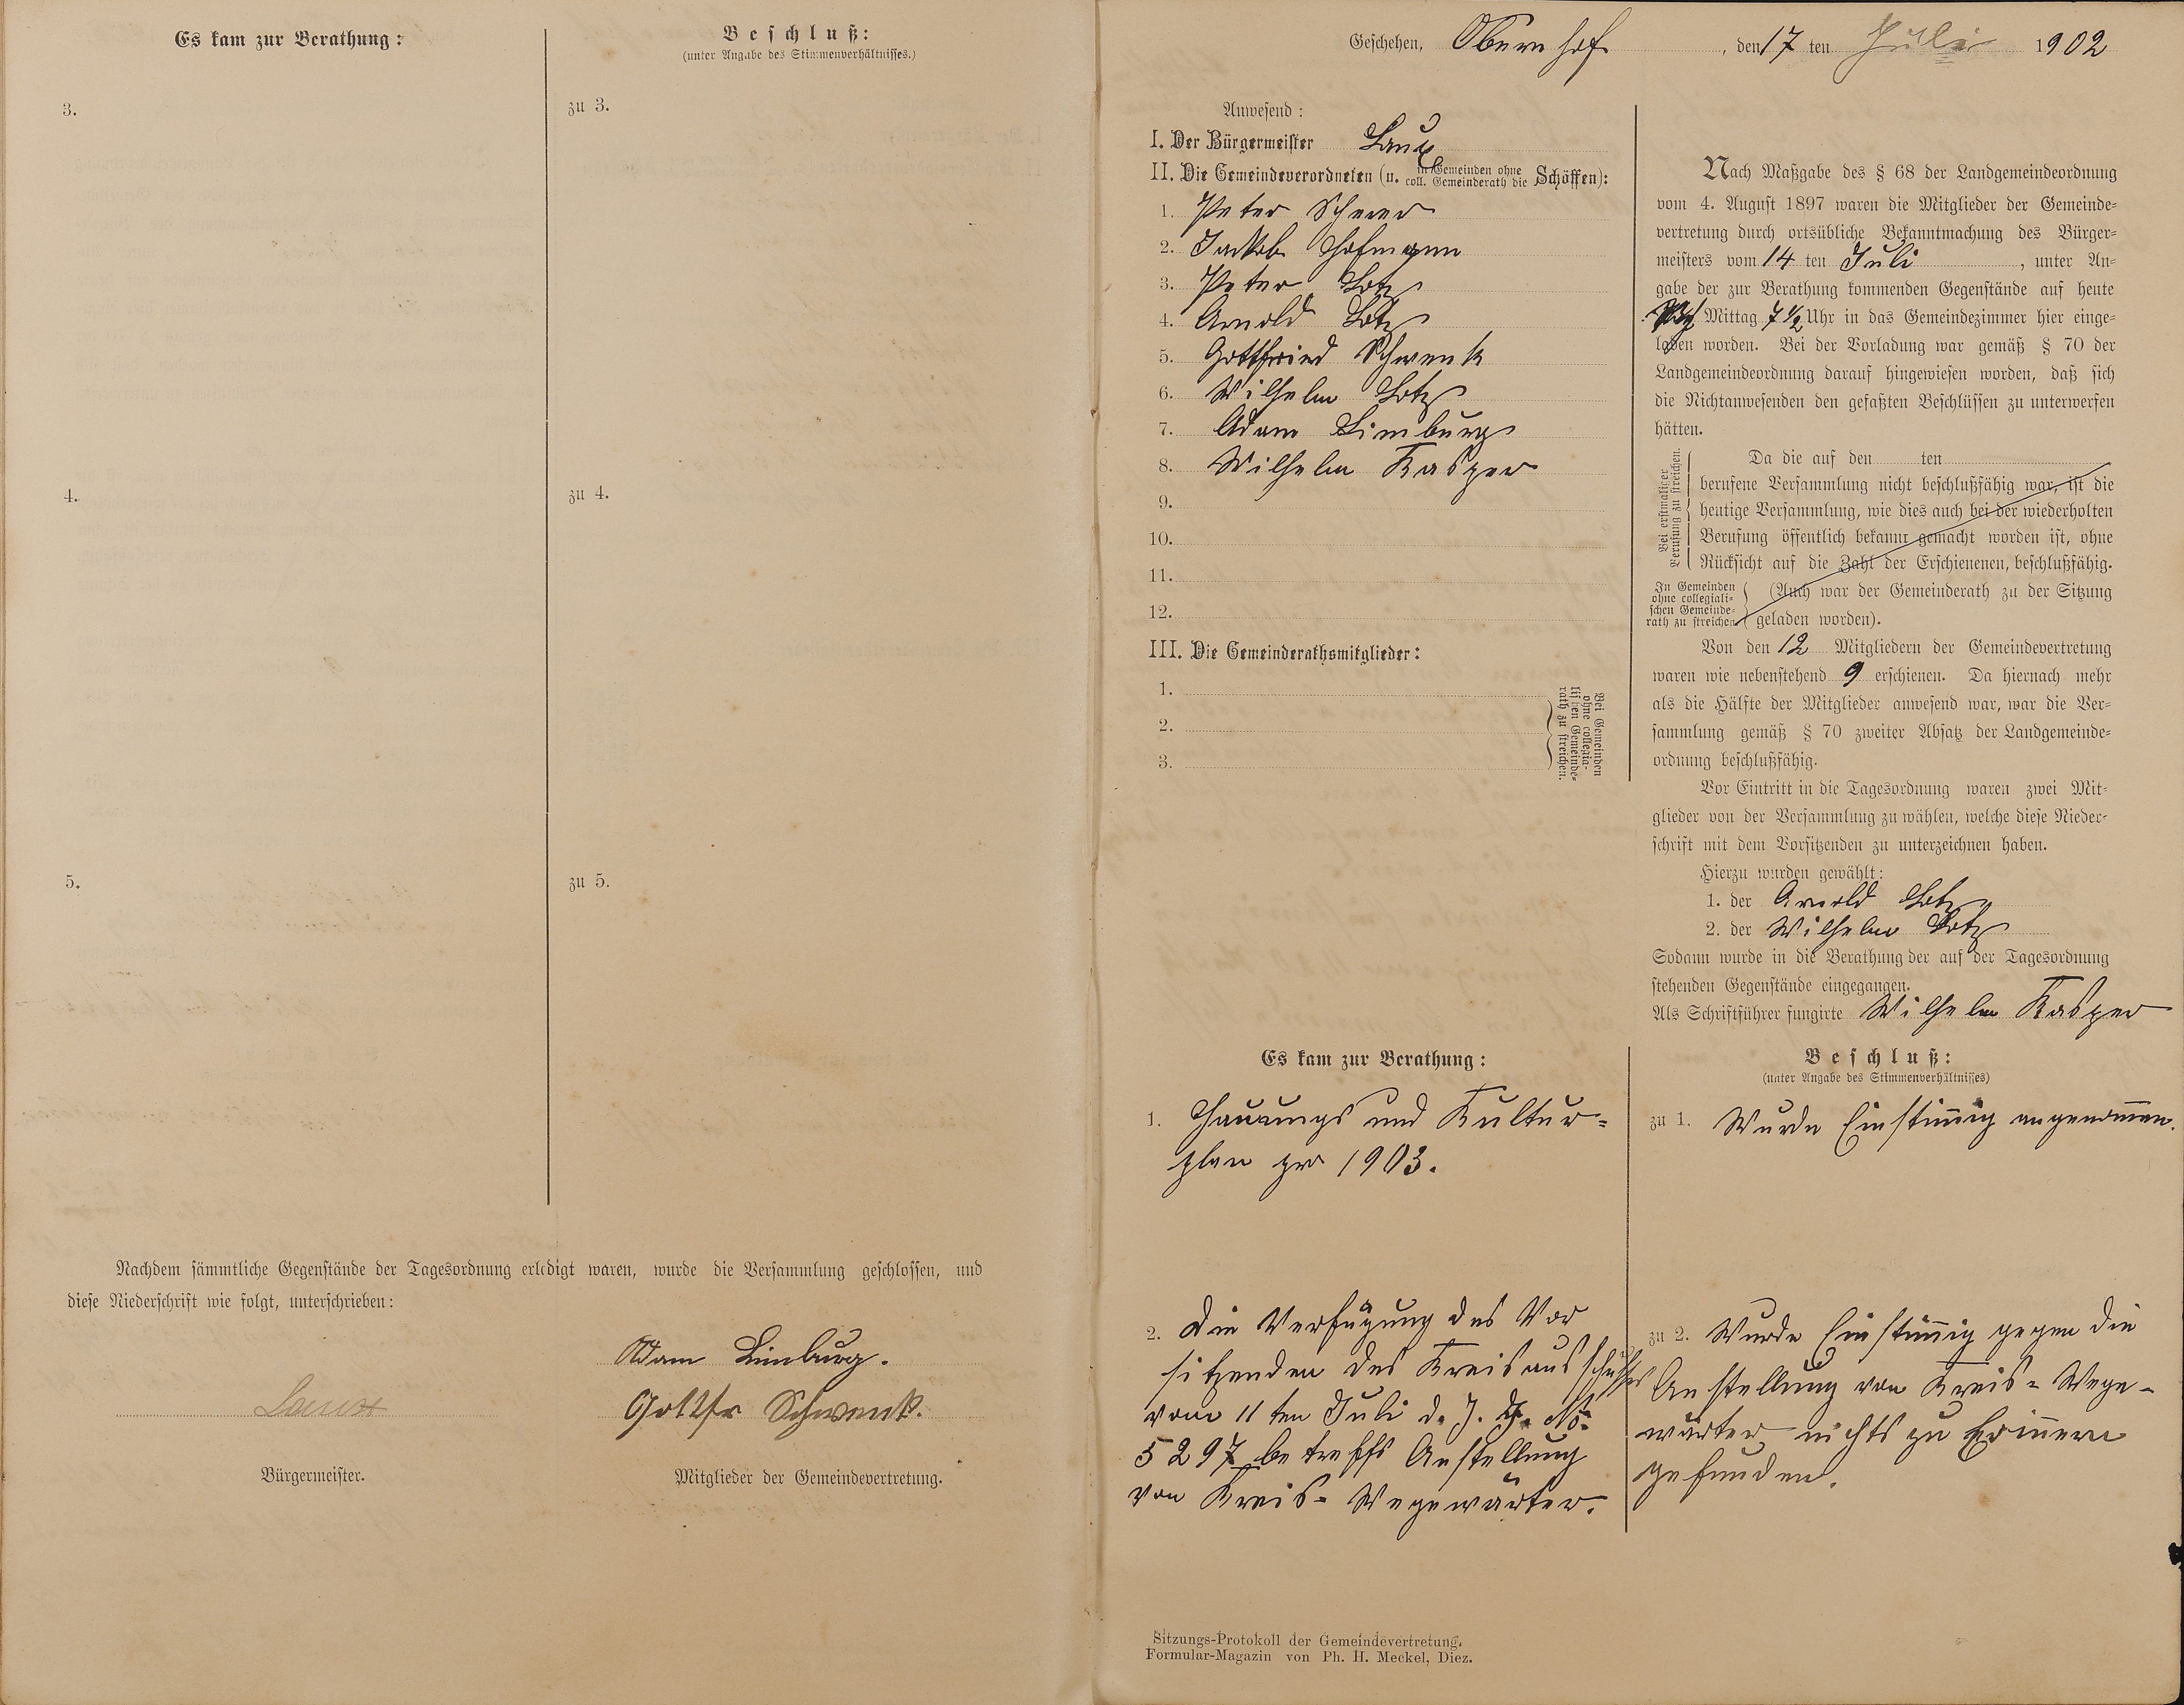 Es kam zur Berathung:
Beschluß:
(unter Angabe des Stimmenverhältnisses.)
3.
zu 3.
4.
zu 4.
5.
zu 5.
Nachdem sämmtliche Gegenstände der Tagesordnung erledigt waren, wurde die Versammlung geschlossen, und
diese Niederschrift wie folgt, unterschrieben:
Adam Limburg.
Laux
Gottfr Schwenk.
Bürgermeister.
Mitglieder der Gemeindevertretung.
Geschehen, Obernhof, den 17 ten Juli 1902
Anwesend:
I. Der Bürgermeister Laux
II. Die Gemeindeverordneten (u. in Gemeinden ohne coll. Gemeinderath die Schöffen):
1. Peter Scherer
2. Jackob Hofmann
3. Peter Lotz
4. Arnold Lotz
5. Gottfried Schwenk
6. Wilhelm Lotz
7. Adam Limburg
8. Wilhelm Kasper
9.
10.
11.
12.
III. Die Gemeinderathsmitglieder:
1.
2.
3.
Bei Gemeinden
ohne collegia-
lischen Gemeinde-
rath zu streichen.
Nach Maßgabe des § 68 der Landgemeindeordnung
vom 4. August 1897 waren die Mitglieder der Gemeinde-
vertretung durch ortsübliche Bekanntmachung des Bürger-
meisters vom 14 ten Juli, unter An-
gabe der zur Berathung kommenden Gegenstände auf heute
Mittag 7 1/2 Uhr in das Gemeindezimmer hier einge-
laden worden. Bei der Vorladung war gemäß § 70 der
Landgemeindeordnung darauf hingewiesen worden, daß sich
die Nichtanwesenden den gefaßten Beschlüssen zu unterwerfen
hätten.
Bei erstmaliger
Berufung zu streichen.
Da die auf den ten
berufene Versammlung nicht beschlußfähig war, ist die
heutige Versammlung, wie dies auch bei der wiederholten
Berufung öffentlich bekannt gemacht worden ist, ohne
Rücksicht auf die Zahl der Erschienenen, beschlußfähig.
In Gemeinden
ohne collegiali-
schen Gemeinde-
rath zu streichen
(Auch war der Gemeinderath zu der Sitzung
geladen worden).
Von den 12 Mitgliedern der Gemeindevertretung
waren wie nebenstehend 9 erschienen. Da hiernach mehr
als die Hälfte der Mitglieder anwesend war, war die Ver-
sammlung gemäß § 70 zweiter Absatz der Landgemeinde-
ordnung beschlußfähig.
Vor Eintritt in die Tagesordnung waren zwei Mit-
glieder von der Versammlung zu wählen, welche diese Nieder-
schrift mit dem Vorsitzenden zu unterzeichnen haben.
Hierzu wurden gewählt:
1. der Arnold Lotz
2. der Wilhelm Lotz
Sodann wurde in die Berathung der auf der Tagesordnung
stehenden Gegenstände eingegangen.
Als Schriftführer fungirte Wilhelm Kasper
Es kam zur Berathung:
Beschluß:
(unter Angabe des Stimmenverhältnisses)
1. Hauungs und Kultur-
plan pro 1903.
zu 1. Wurde Einstimig angenommen.
2. Die Verfügung des Vor
sitzenden des Kreisausschusses
vom 11 ten Juli d. J. No.
5297 betreffs Anstellung
von Kreis-Wegewärter.
zu 2. Wurde Einstimig gegen die
Anstellung von Kreis-Wege-
wärter nichts zu Erinnern
gefunden.
Sitzungs-Protokoll der Gemeindevertretung.
Formular-Magazin von Ph. H. Meckel, Diez.